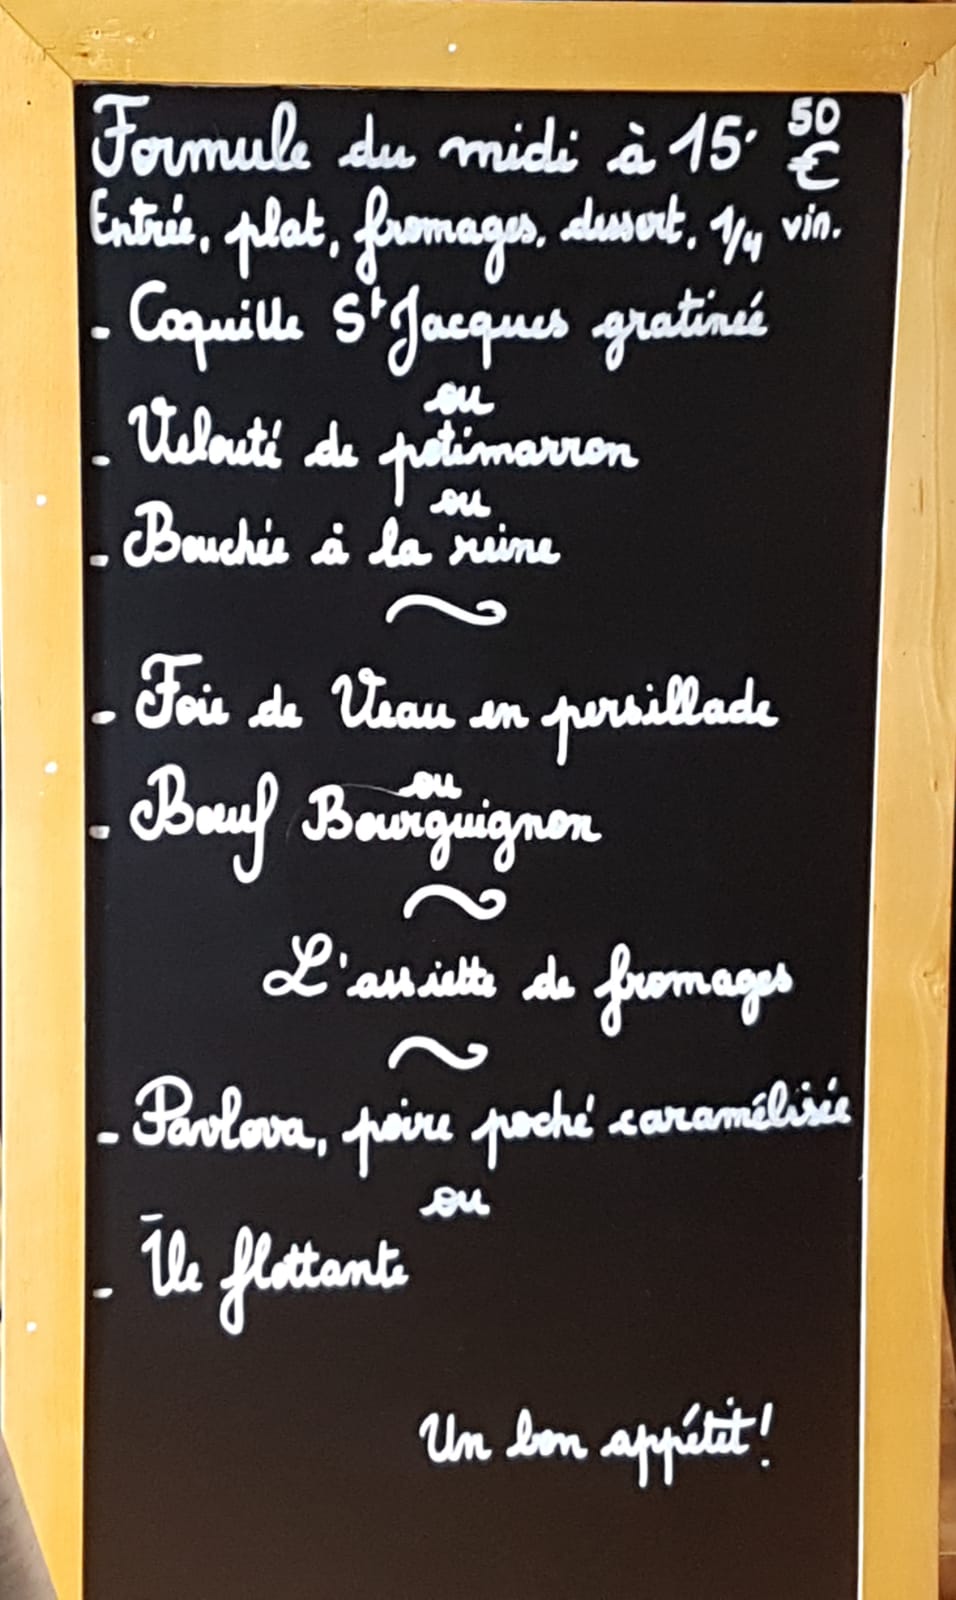 Formule du midi à 15,50 €
Entrée, plat, fromages, dessert, 1/4 vin.
- Coquille St Jacques gratinée
ou
- Velouté de potimarron
ou
- Bouchée à la reine
~
- Foie de Veau en persillade
ou
- Bœuf Bourguignon
~
L'assiette de fromages
~
- Pavlova, poire poché caramélisée
ou
- Île flottante
Un bon appétit!